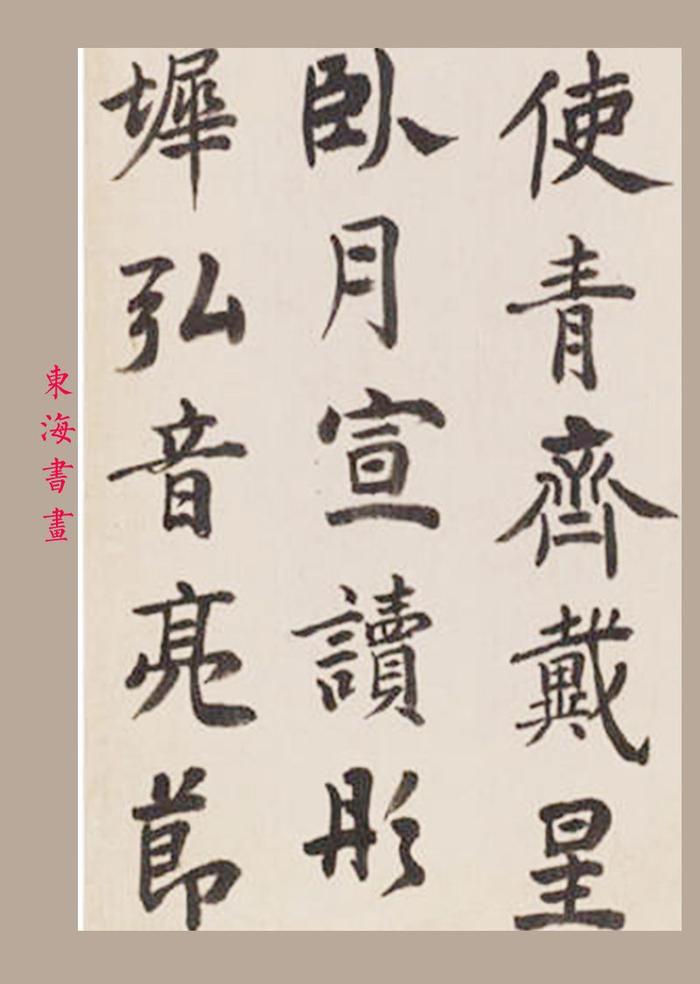 使青齊戴星
臥月宣讀彤
墀弘音亮節
東海書畫